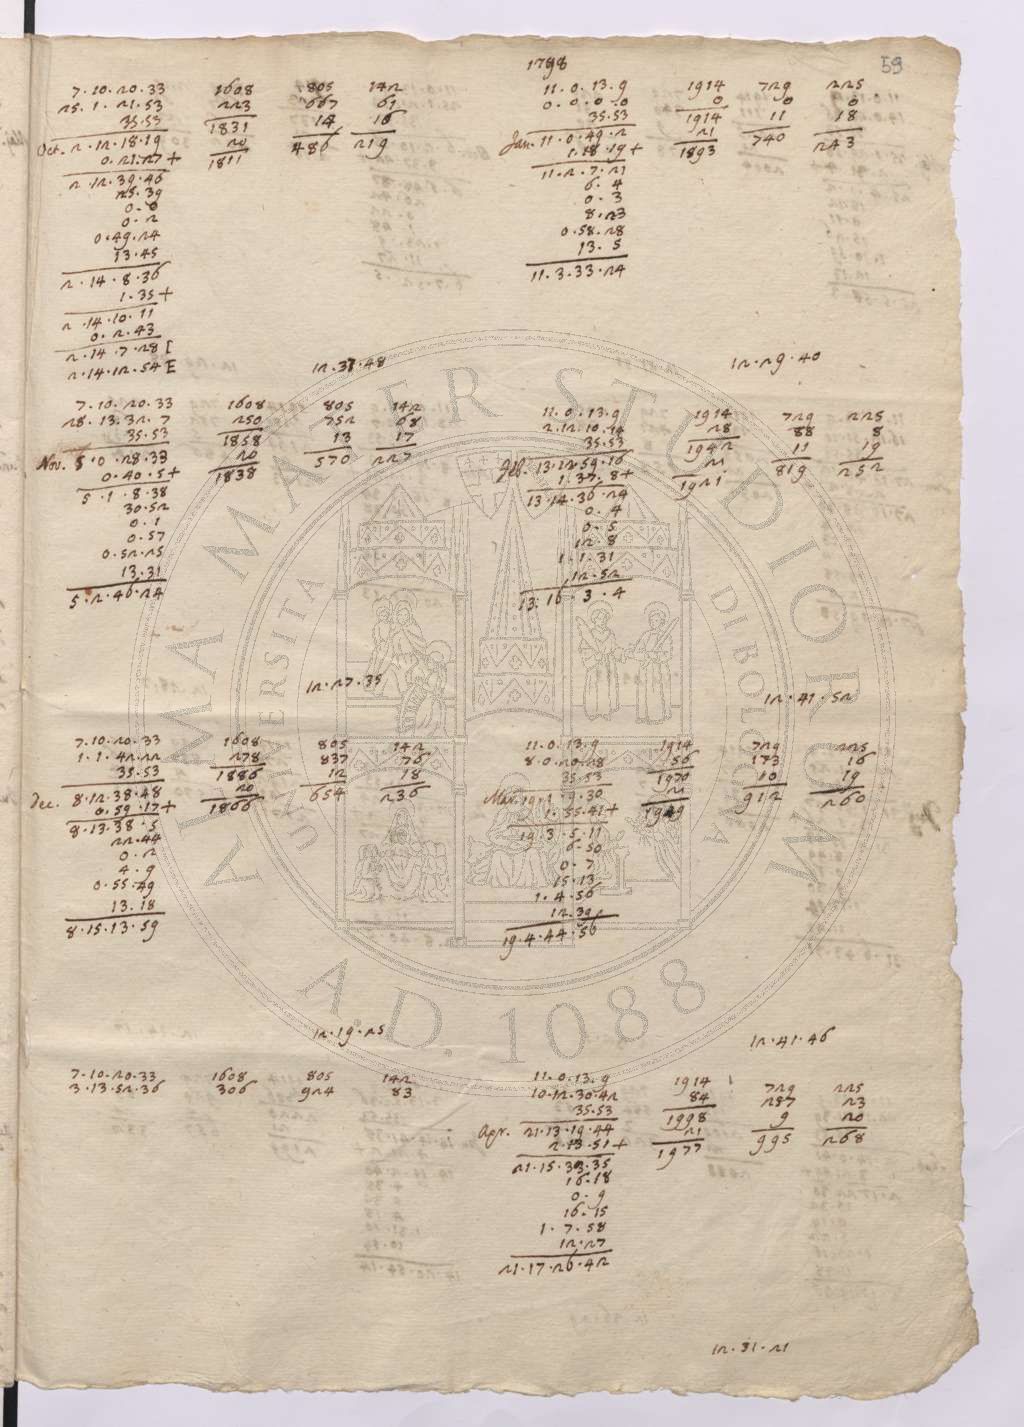 59
7.10.20.33 1608 805 142
25.1.21.53 223 667 61
35.53 1831 14 16
Oct. 2.12.18.19 20 486 219
0.21.27+ 1811
2.12.39.46
25.39
0.0
0.2
0.49.24
13.45
2.14.8.36
1.35+
2.14.10.11
0.2.43
2.14.7.28 I
2.14.12.54 E
12.37.48
7.10.20.33 1608 805 142
28.13.32.7 250 752 68
35.53 1858 13 17
Nov. 5.0.28.33 20 570 227
0.40.5+ 1838
5.1.8.38
30.52
0.1
0.57
0.52.25
13.31
5.2.46.24
12.27.35
7.10.20.33 1608 805 142
1.1.42.22 278 837 76
35.53 1886 12 18
Dec. 8.12.38.48 20 654 236
0.59.17+ 1866
8.13.38.5
22.44
0.2
4.9
0.55.49
13.18
8.15.13.59
12.19.25
7.10.20.33 1608 805 142
3.13.52.36 306 924 83
1798
11.0.13.9 1914 729 225
0.0.0.0 0 0 0
35.53 1914 11 18
Jan. 11.0.49.2 21 740 243
1.18.19+ 1893
11.2.7.21
6.4
0.3
8.23
0.58.28
13.5
11.3.33.24
12.29.40
11.0.13.9 1914 729 225
2.12.10.14 28 88 8
35.53 1942 11 19
Feb. 13.12.59.16 21 819 252
1.37.8+ 1921
13.14.36.24
0.4
0.5
12.8
1.1.31
12.52
13.16.3.4
12.41.52
11.0.13.9 1914 729 225
8.0.20.28 56 173 16
35.53 1970 10 19
Mar. 19.1.9.30 21 912 260
1.55.41+ 1949
19.3.5.11
6.50
0.7
15.13
1.4.56
12.39
19.4.44.56
12.41.46
11.0.13.9 1914 729 225
10.12.30.42 84 287 23
35.53 1998 9 20
Apr. 21.13.19.44 21 995 268
2.13.51+ 1977
21.15.33.35
16.18
0.9
16.15
1.7.58
12.27
21.17.26.42
12.31.21
ALMA MATER STUDIORUM
UNIVERSITA DI BOLOGNA
A.D. 1088